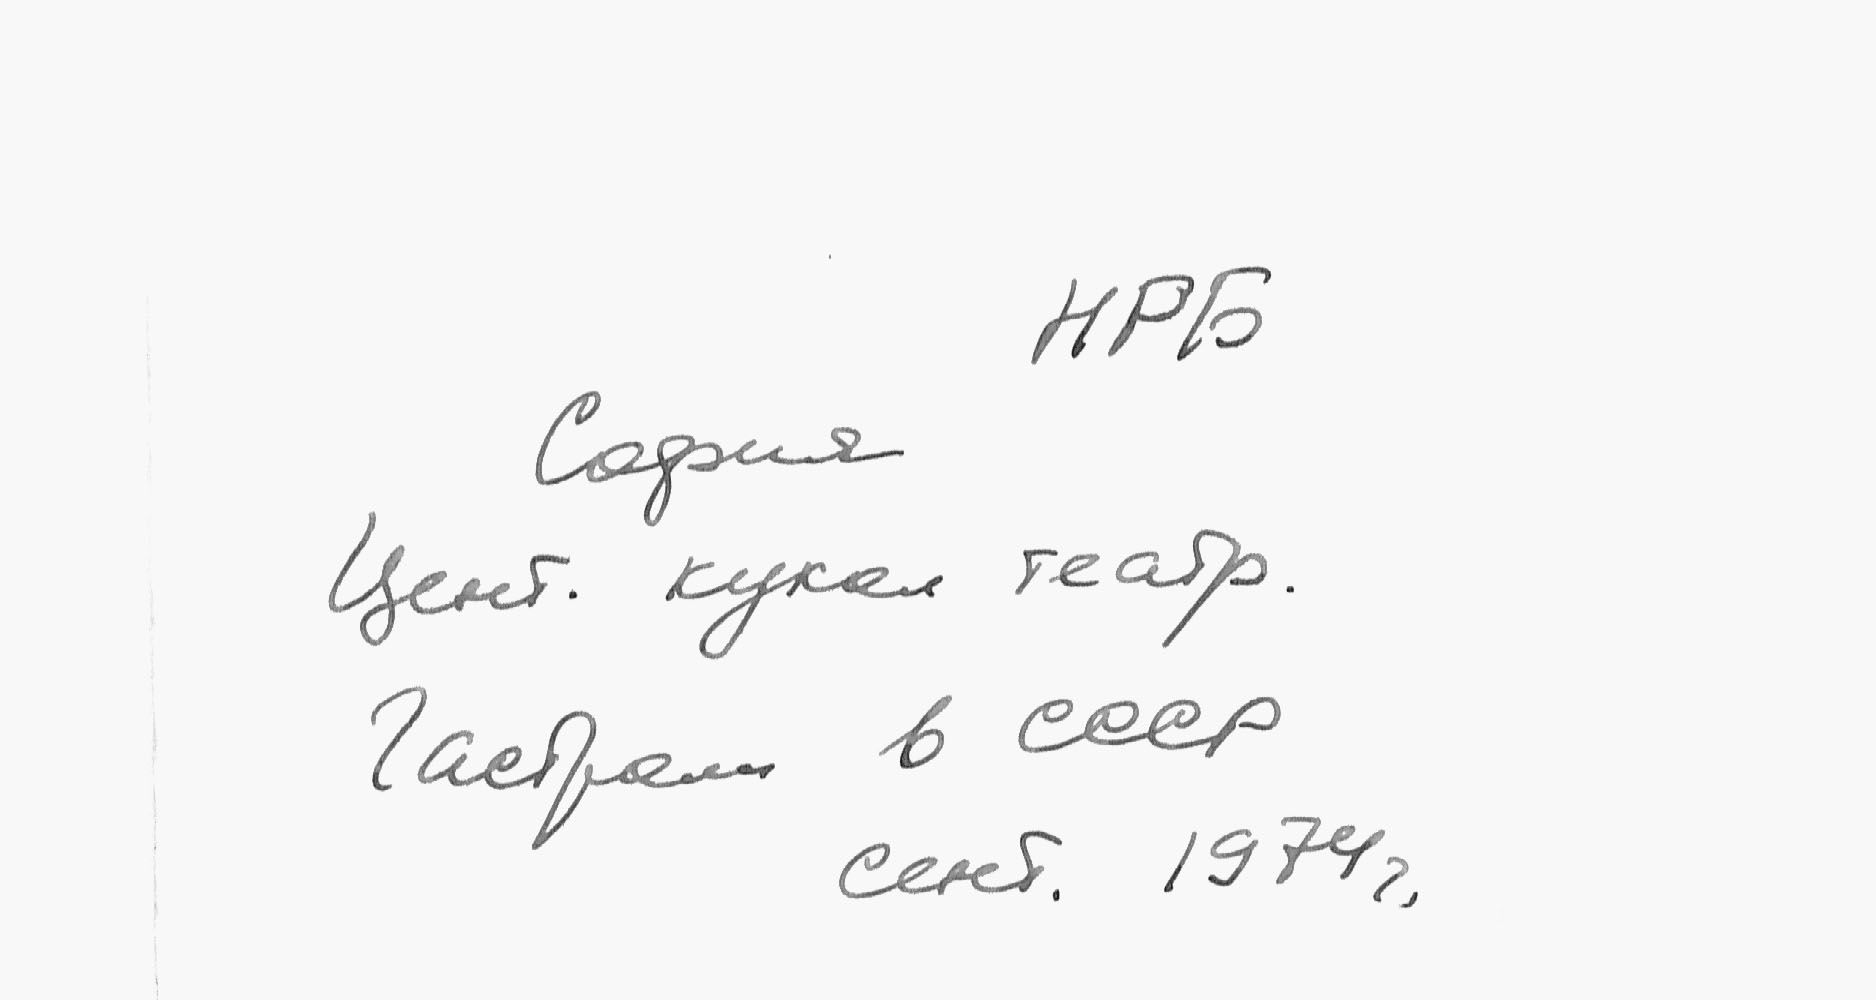 НРБ
София
Цент. кукол театр.
Гастроли в СССР
сент. 1974г.